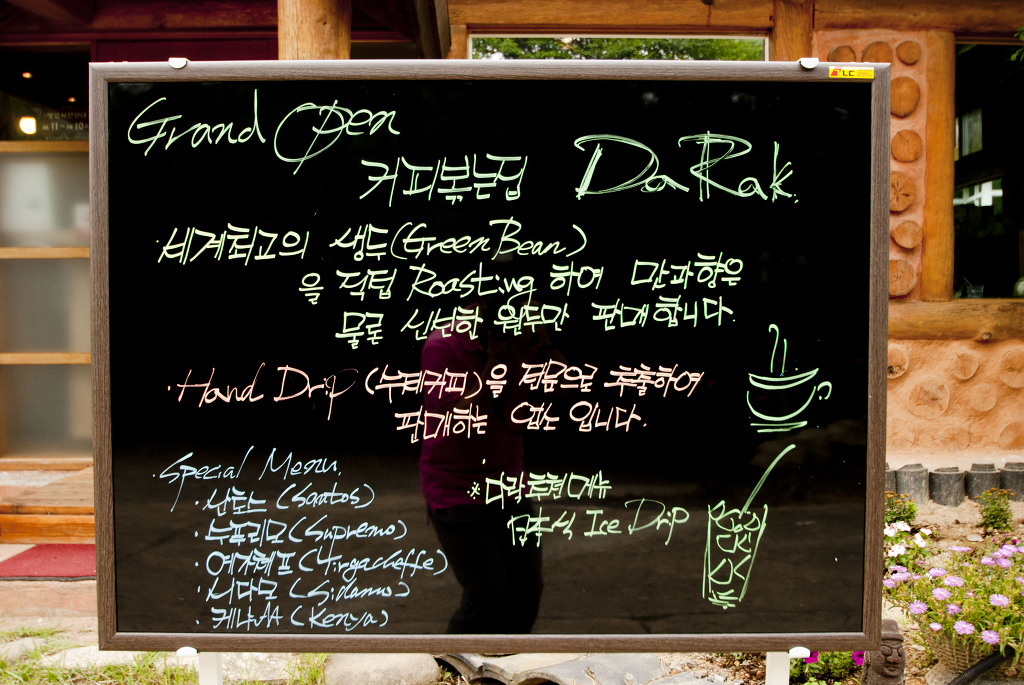 LC
Grand Open
커피볶는집 DaRak.
·세계최고의 생두(Green Bean)
을 직접 Roasting 하여 맛과향은
물론 신선한 원두만 판매합니다.
·Hand Drip (수제커피)을 전문으로 추출하여
판매하는 업소 입니다.
·Special Menu.
·산토스 (Santos)
·수프리모 (Supremo)
·예가체프 (Yirgacheffe)
·시다모 (Sidamo)
·케냐AA (Kenya)
*다락추천메뉴
점적식 Ice Drip